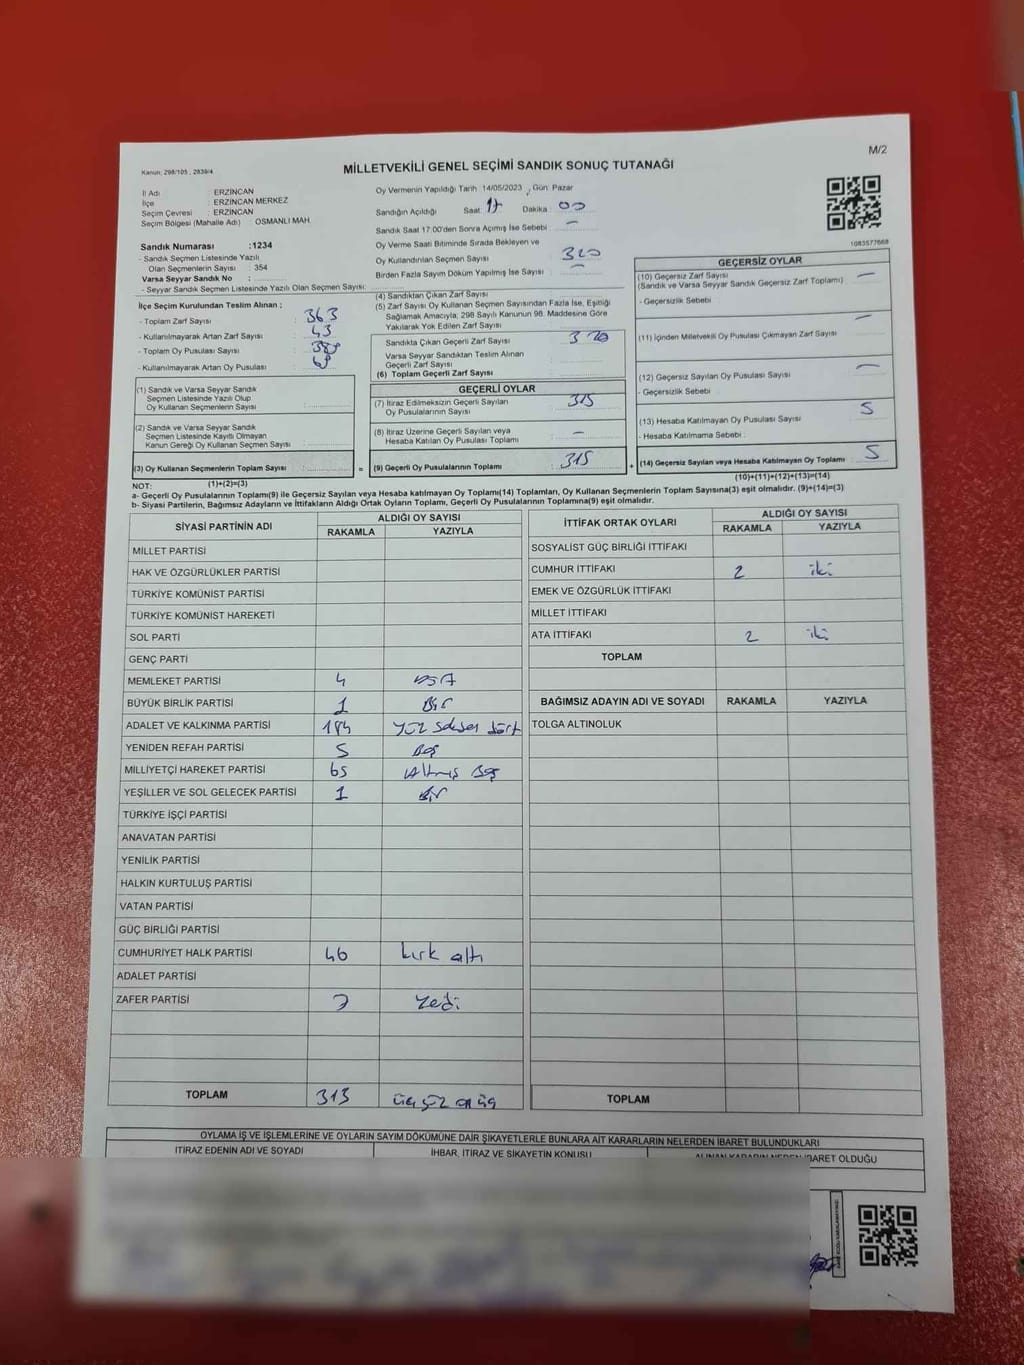 M/2
Kanun; 298/105 , 2839/4
MİLLETVEKİLİ GENEL SEÇİMİ SANDIK SONUÇ TUTANAĞI
İl Adı : ERZİNCAN
İlçe : ERZİNCAN MERKEZ
Seçim Çevresi : ERZİNCAN
Seçim Bölgesi (Mahalle Adı) : OSMANLI MAH.
Sandık Numarası :1234
- Sandık Seçmen Listesinde Yazılı
Olan Seçmenlerin Sayısı : 354
Varsa Seyyar Sandık No :
- Seyyar Sandık Seçmen Listesinde Yazılı Olan Seçmen Sayısı:
Oy Vermenin Yapıldığı Tarih 14/05/2023 , Gün: Pazar
Sandığın Açıldığı Saat 17 Dakika 00
Sandık Saat 17:00'den Sonra Açımış İse Sebebi : —
Oy Verme Saati Bitiminde Sırada Bekleyen ve
Oy Kullandırılan Seçmen Sayısı 320
Birden Fazla Sayım Döküm Yapılmış İse Sayısı : —
1083577668
İlçe Seçim Kurulundan Teslim Alınan ;
- Toplam Zarf Sayısı : 363
- Kullanılmayarak Artan Zarf Sayısı : 43
- Toplam Oy Pusulası Sayısı :
- Kullanılmayarak Artan Oy Pusulası :
(1) Sandık ve Varsa Seyyar Sandık
Seçmen Listesinde Yazılı Olup
Oy Kullanan Seçmenlerin Sayısı :
(2) Sandık ve Varsa Seyyar Sandık
Seçmen Listesinde Kayıtlı Olmayan
Kanun Gereği Oy Kullanan Seçmen Sayısı :
(3) Oy Kullanan Seçmenlerin Toplam Sayısı : =
(1)+(2)=(3)
(4) Sandıktan Çıkan Zarf Sayısı
(5) Zarf Sayısı Oy Kullanan Seçmen Sayısından Fazla İse, Eşitliği
Sağlamak Amacıyla, 298 Sayılı Kanunun 98. Maddesine Göre
Yakılarak Yok Edilen Zarf Sayısı :
Sandıkta Çıkan Geçerli Zarf Sayısı : 320
Varsa Seyyar Sandıktan Teslim Alınan
Geçerli Zarf Sayısı :
(6) Toplam Geçerli Zarf Sayısı :
GEÇERLİ OYLAR
(7) İtiraz Edilmeksizin Geçerli Sayılan
Oy Pusulalarının Sayısı : 315
(8) İtiraz Üzerine Geçerli Sayılan veya
Hesaba Katılan Oy Pusulası Toplamı : —
(9) Geçerli Oy Pusulalarının Toplamı : 315 +
GEÇERSİZ OYLAR
(10) Geçersiz Zarf Sayısı : —
(Sandık ve Varsa Seyyar Sandık Geçersiz Zarf Toplamı)
- Geçersizlik Sebebi :
(11) İçinden Milletvekili Oy Pusulası Çıkmayan Zarf Sayısı : —
(12) Geçersiz Sayılan Oy Pusulası Sayısı : —
- Geçersizlik Sebebi :
(13) Hesaba Katılmayan Oy Pusulası Sayısı : 5
- Hesaba Katılmama Sebebi :
(14) Geçersiz Sayılan veya Hesaba Katılmayan Oy Toplamı : 5
(10)+(11)+(12)+(13)=(14)
NOT:
a- Geçerli Oy Pusulalarının Toplamı(9) ile Geçersiz Sayılan veya Hesaba katılmayan Oy Toplamı(14) Toplamları, Oy Kullanan Seçmenlerin Toplam Sayısına(3) eşit olmalıdır. (9)+(14)=(3)
b- Siyasi Partilerin, Bağımsız Adayların ve İttifakların Aldığı Ortak Oyların Toplamı, Geçerli Oy Pusulalarının Toplamına(9) eşit olmalıdır.
SİYASİ PARTİNİN ADI ALDIĞI OY SAYISI
RAKAMLA YAZIYLA
MİLLET PARTİSİ
HAK VE ÖZGÜRLÜKLER PARTİSİ
TÜRKİYE KOMÜNİST PARTİSİ
TÜRKİYE KOMÜNİST HAREKETİ
SOL PARTİ
GENÇ PARTİ
MEMLEKET PARTİSİ 4
BÜYÜK BİRLİK PARTİSİ 1 Bir
ADALET VE KALKINMA PARTİSİ 184 yüz seksen dört
YENİDEN REFAH PARTİSİ 5 Beş
MİLLİYETÇİ HAREKET PARTİSİ 65 Altmış Beş
YEŞİLLER VE SOL GELECEK PARTİSİ 1 Bir
TÜRKİYE İŞÇİ PARTİSİ
ANAVATAN PARTİSİ
YENİLİK PARTİSİ
HALKIN KURTULUŞ PARTİSİ
VATAN PARTİSİ
GÜÇ BİRLİĞİ PARTİSİ
CUMHURİYET HALK PARTİSİ 46 kırk altı
ADALET PARTİSİ
ZAFER PARTİSİ 7 Yedi
TOPLAM 313 üçyüz onüç
İTTİFAK ORTAK OYLARI ALDIĞI OY SAYISI
RAKAMLA YAZIYLA
SOSYALİST GÜÇ BİRLİĞİ İTTİFAKI
CUMHUR İTTİFAKI 2 iki
EMEK VE ÖZGÜRLÜK İTTİFAKI
MİLLET İTTİFAKI
ATA İTTİFAKI 2 iki
TOPLAM
BAĞIMSIZ ADAYIN ADI VE SOYADI RAKAMLA YAZIYLA
TOLGA ALTINOLUK
TOPLAM
OYLAMA İŞ VE İŞLEMLERİNE VE OYLARIN SAYIM DÖKÜMÜNE DAİR ŞİKAYETLERLE BUNLARA AİT KARARLARIN NELERDEN İBARET BULUNDUKLARI
İTİRAZ EDENİN ADI VE SOYADI İHBAR, İTİRAZ VE ŞİKAYETİN KONUSU ALINAN KARARIN NEDEN İBARET OLDUĞU